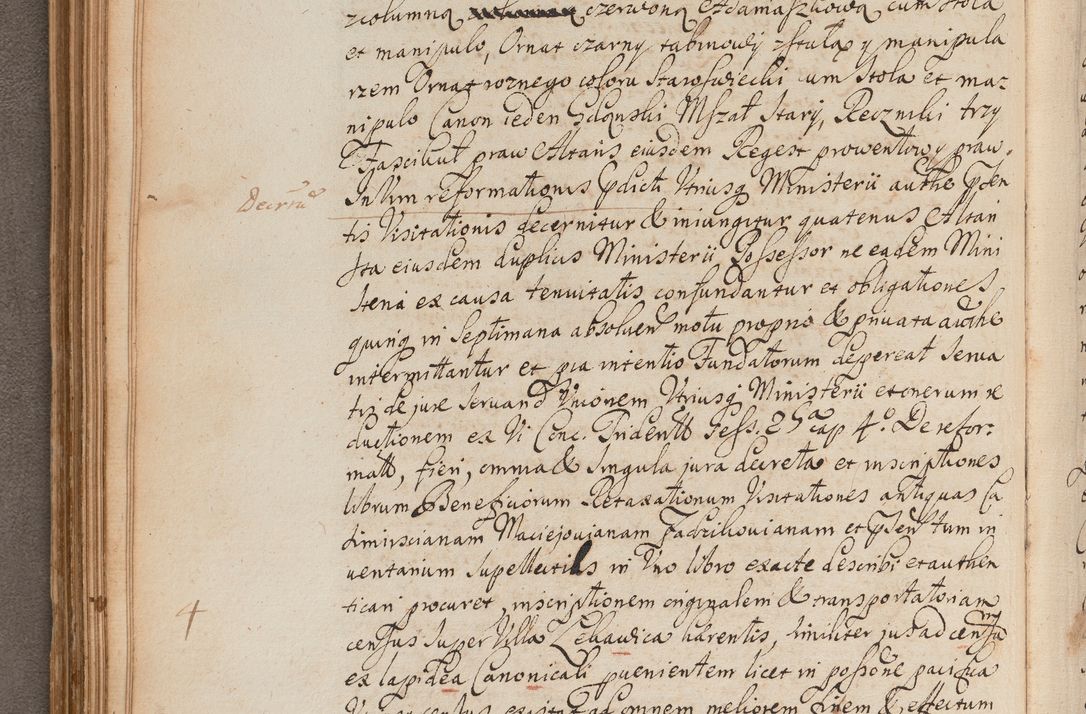 z columną czerwoną Adamaszkową cum stola
et manipulo, Ornat czarny tabinowy z stułą y manipula
rzem Ornat roznego coloru staroswiecki cum stola et ma=
nipulo Canon ieden Gdąnski Mszał stary, Ręczniki trzy
Fascikuł praw Altaris eiusdem Regestr prowentow y praw.
Decrtū
In Vim reformationis Pdicti Utriusq Ministerii authe Psen
tis Visitationis decernitur & iniungitur quatenus Altari
sta eiusdem duplicis Ministerii Possessor ne eadem Mini
steria ex causa tenuitatis confundantur et obligationes
quinq in Septimana absoluen motu proprio & priuata authe
intermittantur et pia intentio Fundatorum depereat serua
tiz de jure Seruand Unionem Utriusq Ministerii et onerum re
ductionem ex Vi Conc. Tridentt Sess. 25 cap 4º. De refor:
matt, fieri, omnia & singula jura decreta et inscriptiones
librum Beneficiorum Retaxationum Visitationes antiquas Ca
simirscianam Maciejouianam Padziliouianam et Psen tum in
uentarium Supellectilis in Uno libro exacte describi et authen
ticari procuret, inscriptionem originalem & transportatoriam
4
census super Villa Lekawica harentis, similiter jus ad censū
ex lapidea Canonicali puenientem licet in possōne pacifica
census ad omnem meliorem finem & effectum